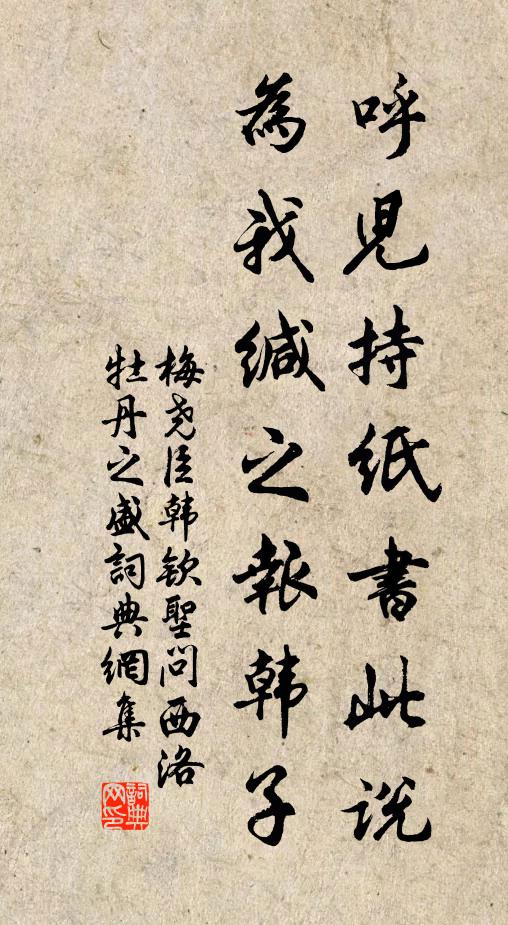 呼児持紙書此説
為我緘之報韓子
梅尧臣韓欽聖問西洛
牡丹之盛詞典網集
詞典
网印